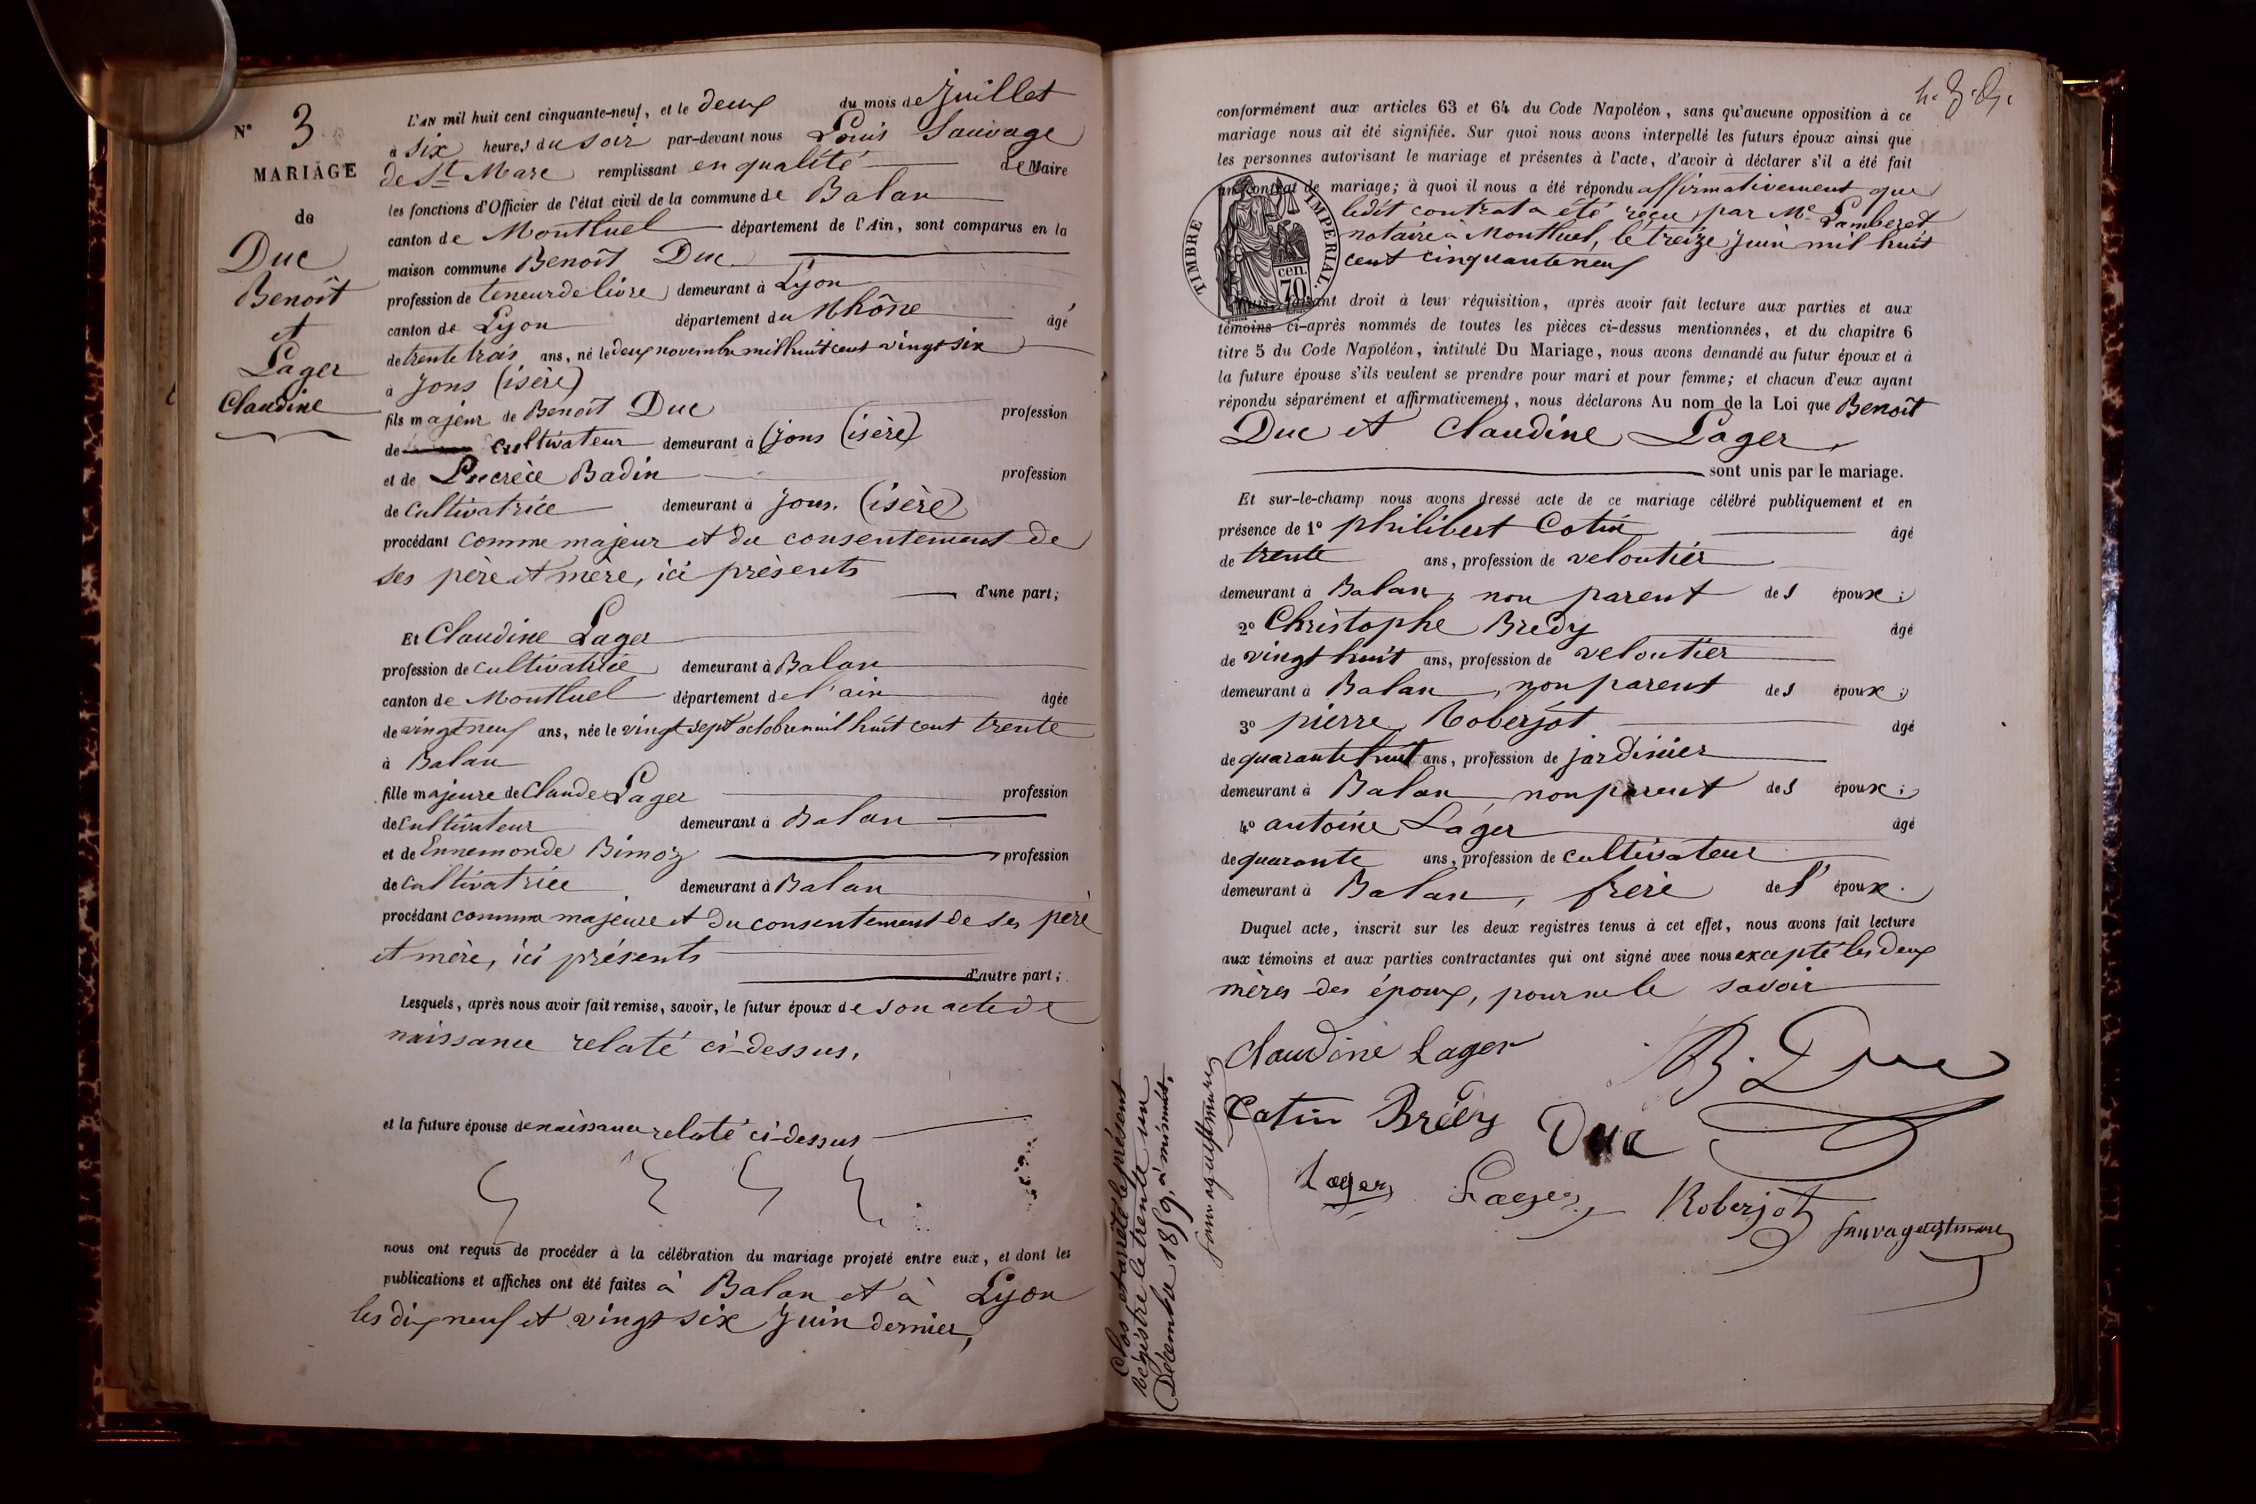 N° 3
MARIAGE
de
Duc
Benoît
et
Lager
Claudine
L'AN mil huit cent cinquante-neuf, et le deux du mois de Juillet
à six heures du soir par-devant nous Louis Sauvage
de St Mare remplissant en qualité de Maire
les fonctions d'Officier de l'état civil de la commune de Balan
canton de Montluel département de l'Ain, sont comparus en la
maison commune Benoît Duc
profession de teneur de livre demeurant à Lyon
canton de Lyon département du Rhône âgé
de trente trois ans, né le deux novembre mil huit cent vingt six
à Jons (isère)
fils majeur de Benoît Duc profession
de cultivateur demeurant à Jons (isère)
et de Lucrèce Badin profession
de cultivatrice demeurant à Jons. (isère)
procédant comme majeur et du consentement de
ses père et mère, ici présents
d'une part;
Et Claudine Lager
profession de cultivatrice demeurant à Balan
canton de Montluel département de l'ain âgée
de vingt neuf ans, née le vingt sept octobre mil huit cent trente
à Balan
fille majeure de Claude Lager profession
de cultivateur demeurant à Balan
et de Ennemonde Bimoz profession
de cultivatrice demeurant à Balan
procédant comme majeure et du consentement de ses père
et mère, ici présents
d'autre part;
Lesquels, après nous avoir fait remise, savoir, le futur époux de son acte de
naissance relaté ci-dessus,
et la future épouse de naissance relaté ci-dessus
nous ont requis de procéder à la célébration du mariage projeté entre eux, et dont les
publications et affiches ont été faites à Balan et à Lyon
les dix neuf et vingt six Juin dernier,
conformément aux articles 63 et 64 du Code Napoléon, sans qu'aucune opposition à ce
mariage nous ait été signifiée. Sur quoi nous avons interpellé les futurs époux ainsi que
les personnes autorisant le mariage et présentes à l'acte, d'avoir à déclarer s'il a été fait
un contrat de mariage; à quoi il nous a été répondu affirmativement que
ledit contrat a été reçu par Me Lamberet
notaire à Montluel, le treize Juin mil huit
cent cinquante neuf
TIMBRE IMPERIAL.
70 cen.
Puis, faisant droit à leur réquisition, après avoir fait lecture aux parties et aux
témoins ci-après nommés de toutes les pièces ci-dessus mentionnées, et du chapitre 6
titre 5 du Code Napoléon, intitulé Du Mariage, nous avons demandé au futur époux et à
la future épouse s'ils veulent se prendre pour mari et pour femme; et chacun d'eux ayant
répondu séparément et affirmativement, nous déclarons Au nom de la Loi que Benoît
Duc et Claudine Lager,
sont unis par le mariage.
Et sur-le-champ nous avons dressé acte de ce mariage célébré publiquement et en
présence de 1° philibert Cotin âgé
de trente ans, profession de veloutier
demeurant à Balan, non parent des époux;
2° Christophe Bredy âgé
de vingt huit ans, profession de veloutier
demeurant à Balan, non parent des époux;
3° pierre Roberjot âgé
de quarante huit ans, profession de jardinier
demeurant à Balan non parent des époux;
4° antoine Lager âgé
de quarante ans, profession de cultivateur
demeurant à Balan, frère de l' époux.
Duquel acte, inscrit sur les deux registres tenus à cet effet, nous avons fait lecture
aux témoins et aux parties contractantes qui ont signé avec nous excepté les deux
mères des époux, pour ne le savoir
Claudine Lager B. Duc
Cotin Brédy Duc
Lager Lager Roberjot Sauvage de St mare
Clos et arrêté le présent
registre le trente un
Décembre 1859, à minuit.
Sauvage de St mare